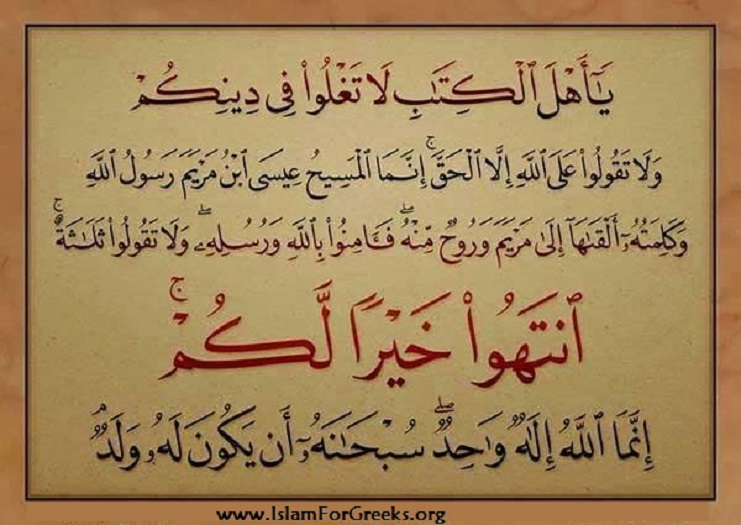 يَٰٓأَهۡلَ ٱلۡكِتَٰبِ لَا تَغۡلُواْ فِي دِينِكُمۡ
وَلَا تَقُولُواْ عَلَى ٱللَّهِ إِلَّا ٱلۡحَقَّۚ إِنَّمَا ٱلۡمَسِيحُ عِيسَى ٱبۡنُ مَرۡيَمَ رَسُولُ ٱللَّهِ
وَكَلِمَتُهُۥٓ أَلۡقَىٰهَآ إِلَىٰ مَرۡيَمَ وَرُوحٞ مِّنۡهُۖ فَـَٔامِنُواْ بِٱللَّهِ وَرُسُلِهِۦۖ وَلَا تَقُولُواْ ثَلَٰثَةٌۚ
ٱنتَهُواْ خَيۡرٗا لَّكُمۡۚ
إِنَّمَا ٱللَّهُ إِلَٰهٞ وَٰحِدٞۖ سُبۡحَٰنَهُۥٓ أَن يَكُونَ لَهُۥ وَلَدٞۘ
www.IslamForGreeks.org